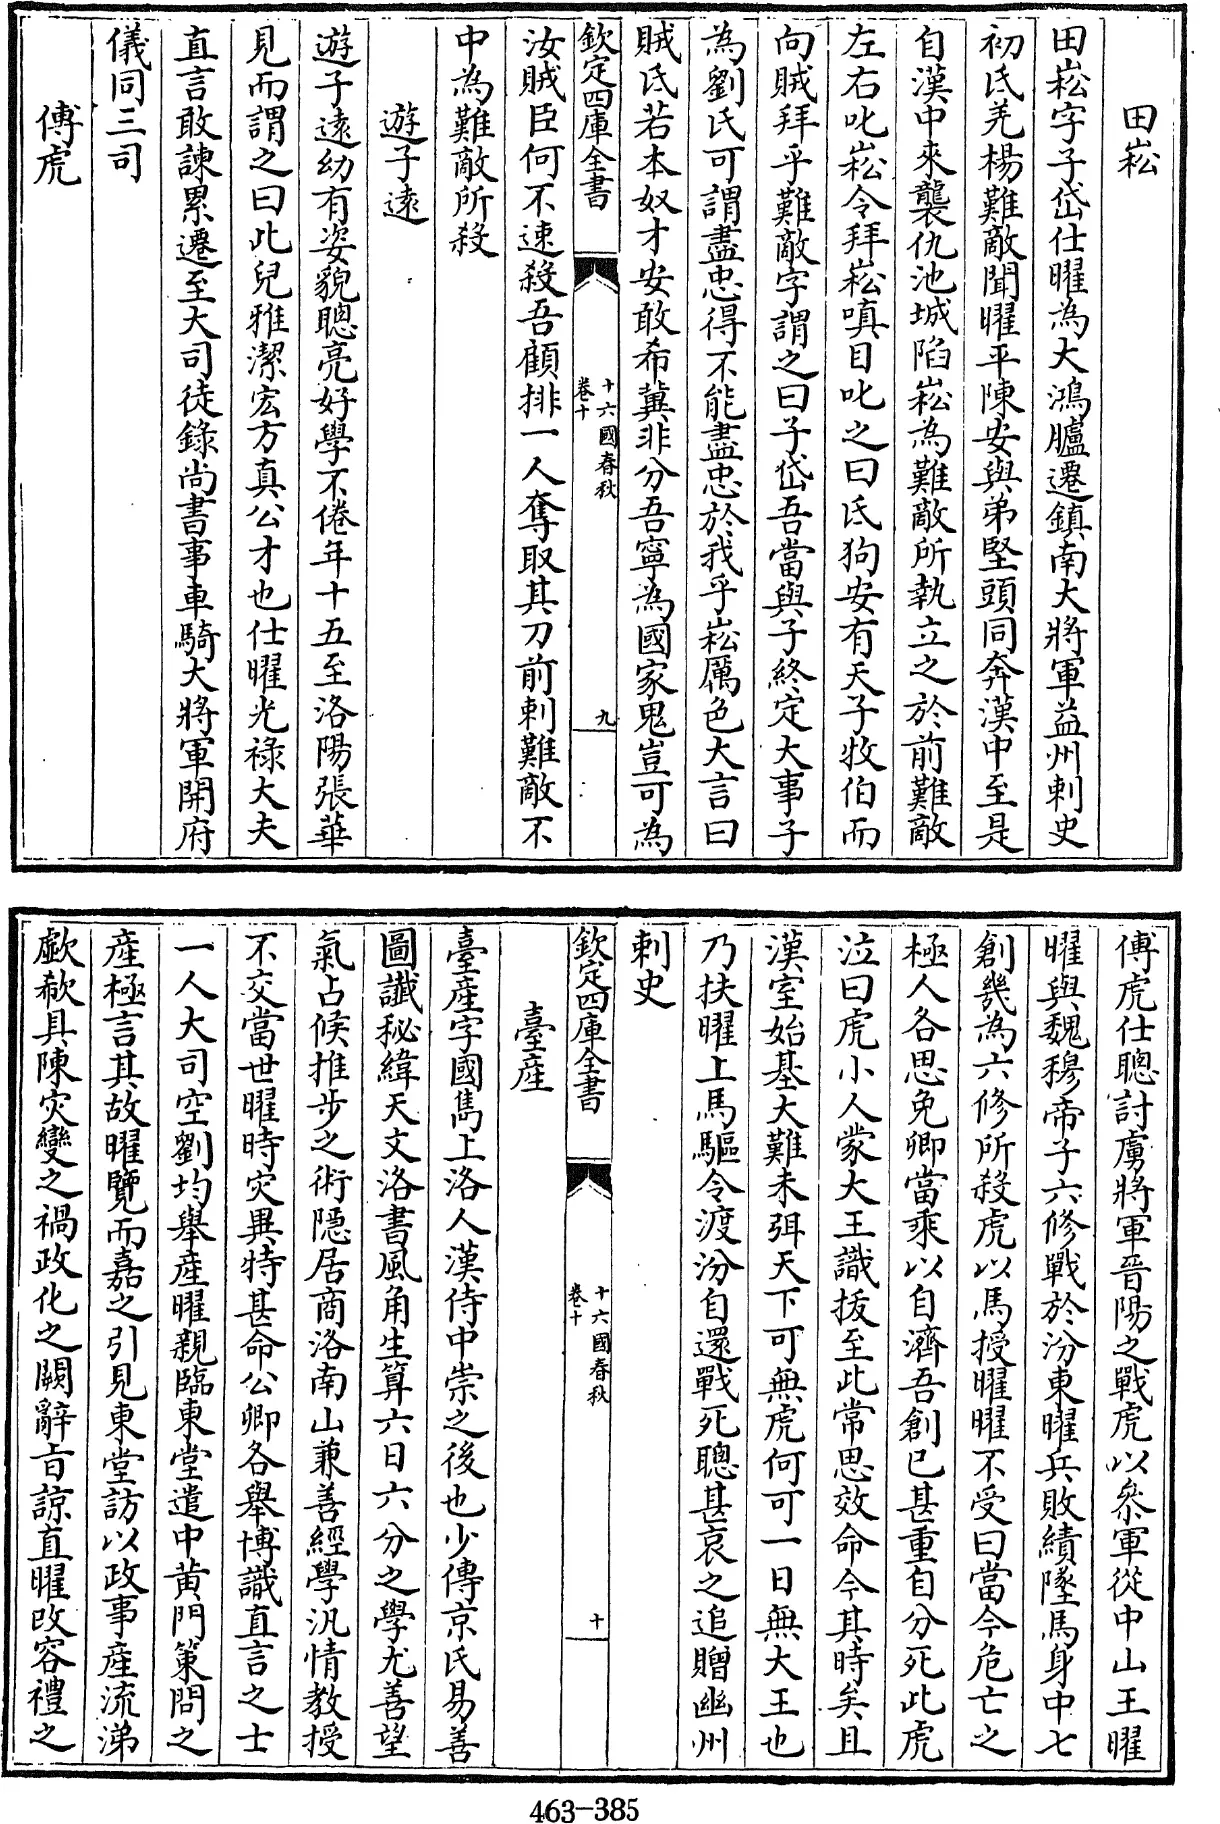 田崧
田崧字子岱仕曜為大鴻臚遷鎮南大將軍益州刺史
初氐羌楊難敵聞曜平陳安與弟堅頭同奔漢中至是
自漢中來襲仇池城陷崧為難敵所執立之於前難敵
左右叱崧令拜崧嗔目叱之曰氐狗安有天子牧伯而
向賊拜乎難敵字謂之曰子岱吾當與子終定大事子
為劉氏可謂盡忠得不能盡忠於我乎崧厲色大言曰
賊氐若本奴才安敢希冀非分吾寧為國家鬼豈可為
欽定四庫全書
十六國春秋
卷十
九
汝賊臣何不速殺吾顧排一人奪取其刀前刺難敵不
中為難敵所殺
遊子遠
遊子遠幼有姿貌聰亮好學不倦年十五至洛陽張華
見而謂之曰此兒雅潔宏方真公才也仕曜光祿大夫
直言敢諫累遷至大司徒錄尚書事車騎大將軍開府
儀同三司
傅虎
傅虎仕聰討虜將軍晉陽之戰虎以叅軍從中山王曜
曜與魏穆帝子六修戰於汾東曜兵敗績墜馬身中七
創幾為六修所殺虎以馬授曜曜不受曰當今危亡之
極人各思免卿當乘以自濟吾創已甚重自分死此虎
泣曰虎小人蒙大王識拔至此常思效命今其時矣且
漢室始基大難未弭天下可無虎何可一日無大王也
乃扶曜上馬驅令渡汾自還戰死聰甚哀之追贈幽州
刺史
欽定四庫全書
十六國春秋
卷十
十
臺産
臺産字國雋上洛人漢侍中崇之後也少傳京氏易善
圖讖秘緯天文洛書風角生算六日六分之學尤善望
氣占候推步之術隱居商洛南山兼善經學汎情教授
不交當世曜時灾異特甚命公卿各舉博識直言之士
一人大司空劉均舉産曜親臨東堂遣中黃門策問之
産極言其故曜覽而嘉之引見東堂訪以政事産流涕
歔欷具陳灾變之禍政化之闕辭旨諒直曜改容禮之
463-385